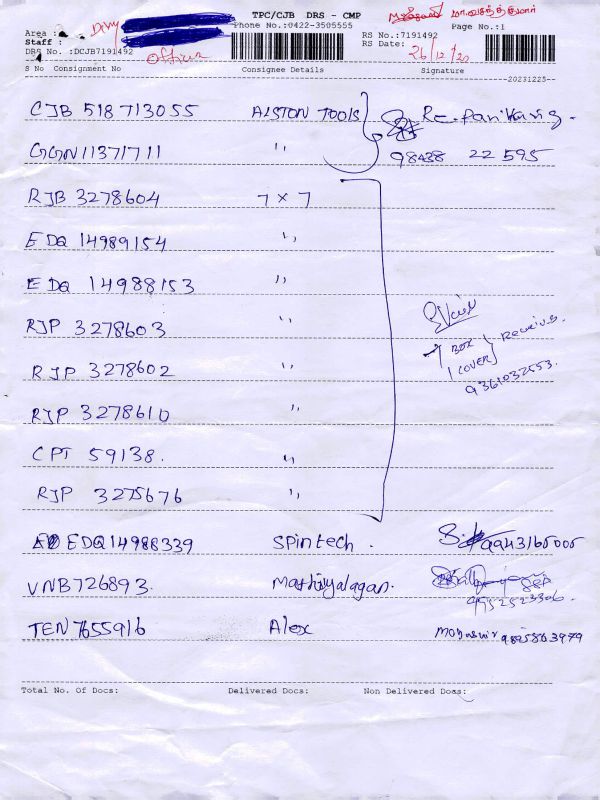 TPC/CJB DRS - CMP
Area :
Phone No.:0422-3505555
RS No.:7191492
Page No.:1
Staff :
DRS No. :DCJB7191492
Officer
RS Date: 26/12/20
S No Consignment No Consignee Details Signature
20231225
CJB 518713055 ALSTON TOOLS
GGN11371711 " 98438 22 595
RJB 3278604 7 x 7
EDQ 14989154 "
EDQ 14988153 "
RJP 3278603 "
7 BOX
1 COVER } Receives
RJP 3278602 " 9361032553.
RJP 3278610 "
CPT 59138. "
RJP 3275676 "
EDQ14988339 Spintech. 9943165005
VNB726893. Mathiyalagan.
9552523306.
TEN7655916 Alex 9895863979
Total No. Of Docs: Delivered Docs: Non Delivered Docs: